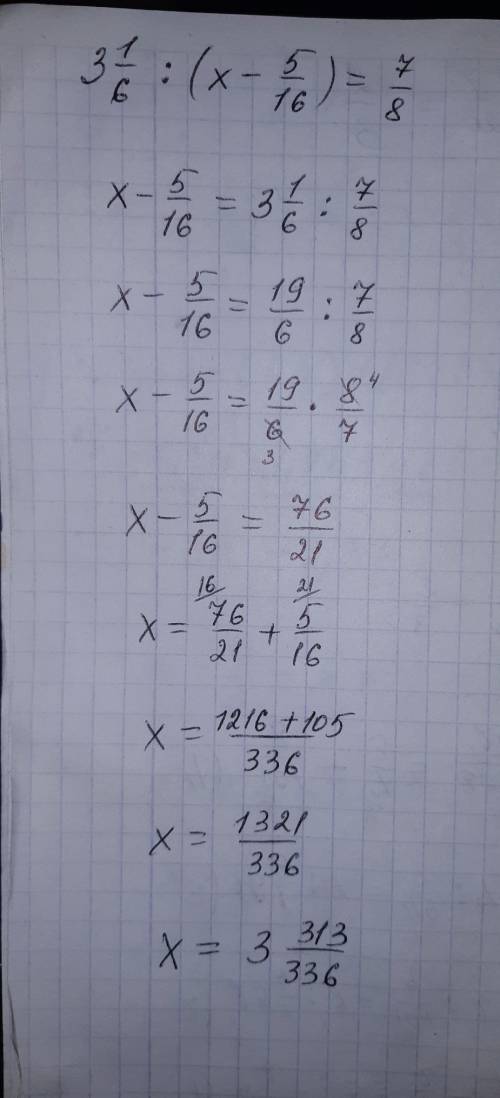 3 1/6 : (x - 5/16) = 7/8
x - 5/16 = 3 1/6 : 7/8
x - 5/16 = 19/6 : 7/8
x - 5/16 = 19/6 3 · 8 4/7
x - 5/16 = 76/21
x = 16/ 76/21 + 21/ 5/16
x = 1216 + 105/336
x = 1321/336
x = 3 313/336